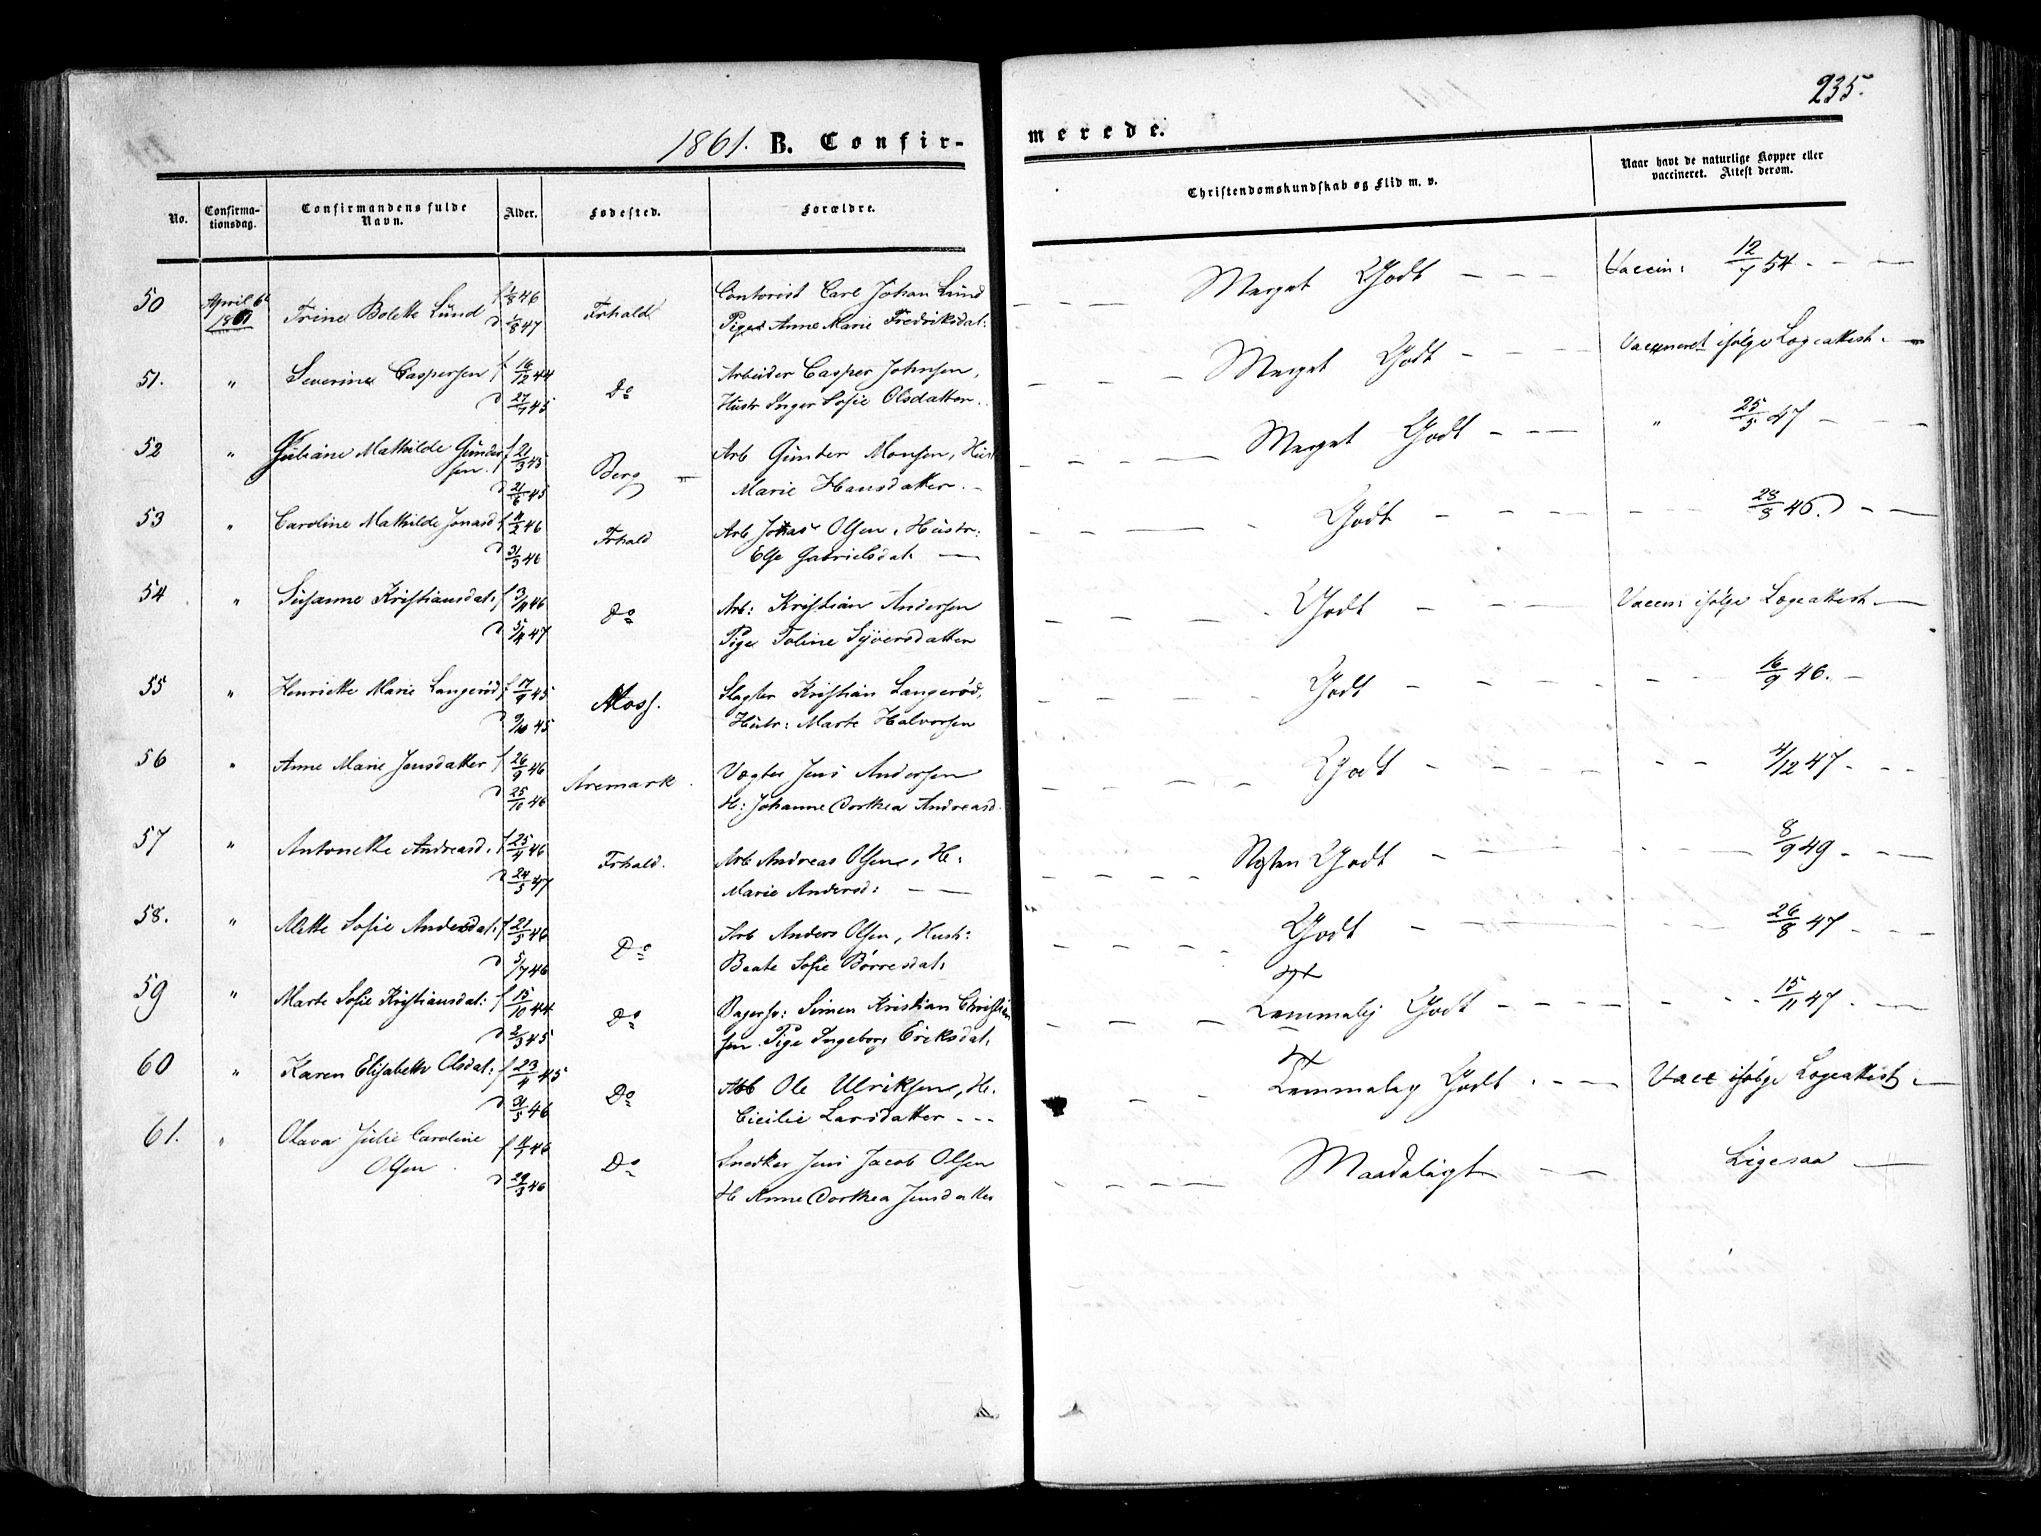 235.
1861. B. Confir-
merede.
No.
Confirma-
tionsdag.
Confirmandens fulde
Navn.
Alder.
Fødested.
Forældre.
Christendomskundskab og Flid m. v.
Naar havt de naturlige Kopper eller
vaccineret. Attest derom.
50 April 6te Trine Bolette Lund f Frhald Contorist Carl Johan Lund Meget Godt Vaccin: 12/7 54
1861 d 1/8 47 Pige Anne Marie Fredriksdat:
51. " Severine Caspersen f 16/12 44 Do Arbeider Casper Johnsen, Meget Godt Vaccineret ifølge Lægeattest
d 27/7 45 Hustr Inger Sofie Olsdatter
52 " Juliane Mathilde Gunder f 21/3 45 Berg Arb Gunder Monsen, Hust Meget Godt " 25/5 47
sen. d 21/6 45 Marie Hansdatter
53 " Caroline Mathilde Jonasd f 11/2 46 Frhald Arb Jonas Olsen, Hustr: Godt 28/8 46
d 31/3 46 Else Gabrielsdat:
54 " Susanne Kristiansdat: f 3/11 46 Do Arb: Kristian Andersen Godt Vaccin: ifølge Lægeattest
d 5/4 47 Pige Toline Syversdatter
55 " Henriette Marie Langerød f 17/9 45 Moss. Slagter Kristian Langerød, Godt 16/9 46.
d 9/10 45 Hustr: Marte Halvorsen
56 " Anne Marie Jensdatter f 26/9 46 Aremark. Vægter Jens Andersen Godt 4/12 47
d 25/10 46 H: Johanne Dorthea Andreasd
57 " Antonette Andreasd. f 25/4 46 Frhald. Arb Andreas Olsen, H: Næsten Godt 8/9 49
d 24/5 47 Marie Andersd:
58. " Alette Sofie Andersdat: f 21/5 46 Do Arb Anders Olsen, Hust: Godt 26/8 47
d 5/7 46 Beate Sofie Børresdat:
59 " Marte Sofie Kristiansdat: f 15/10 44 Do Bagersv: Simen Kristian Christian Temmelig Godt 15/11 47
d 2/3 45 sen. Pige Ingeborg Eriksdat.
60 " Karen Elisabeth Olsdat: f 23/11 45 Do Arb Ole Ulriksen, H. Temmelig Godt Vacc ifølge Lægeattest
d 31/5 46 Cicilie Larsdatter
61. " Olava Julie Caroline f 46 Do Snedker Jens Jacob Olsen Maadeligt Ligesaa
Olsen d 29/3 46 H Anne Dorthea Jensdatter